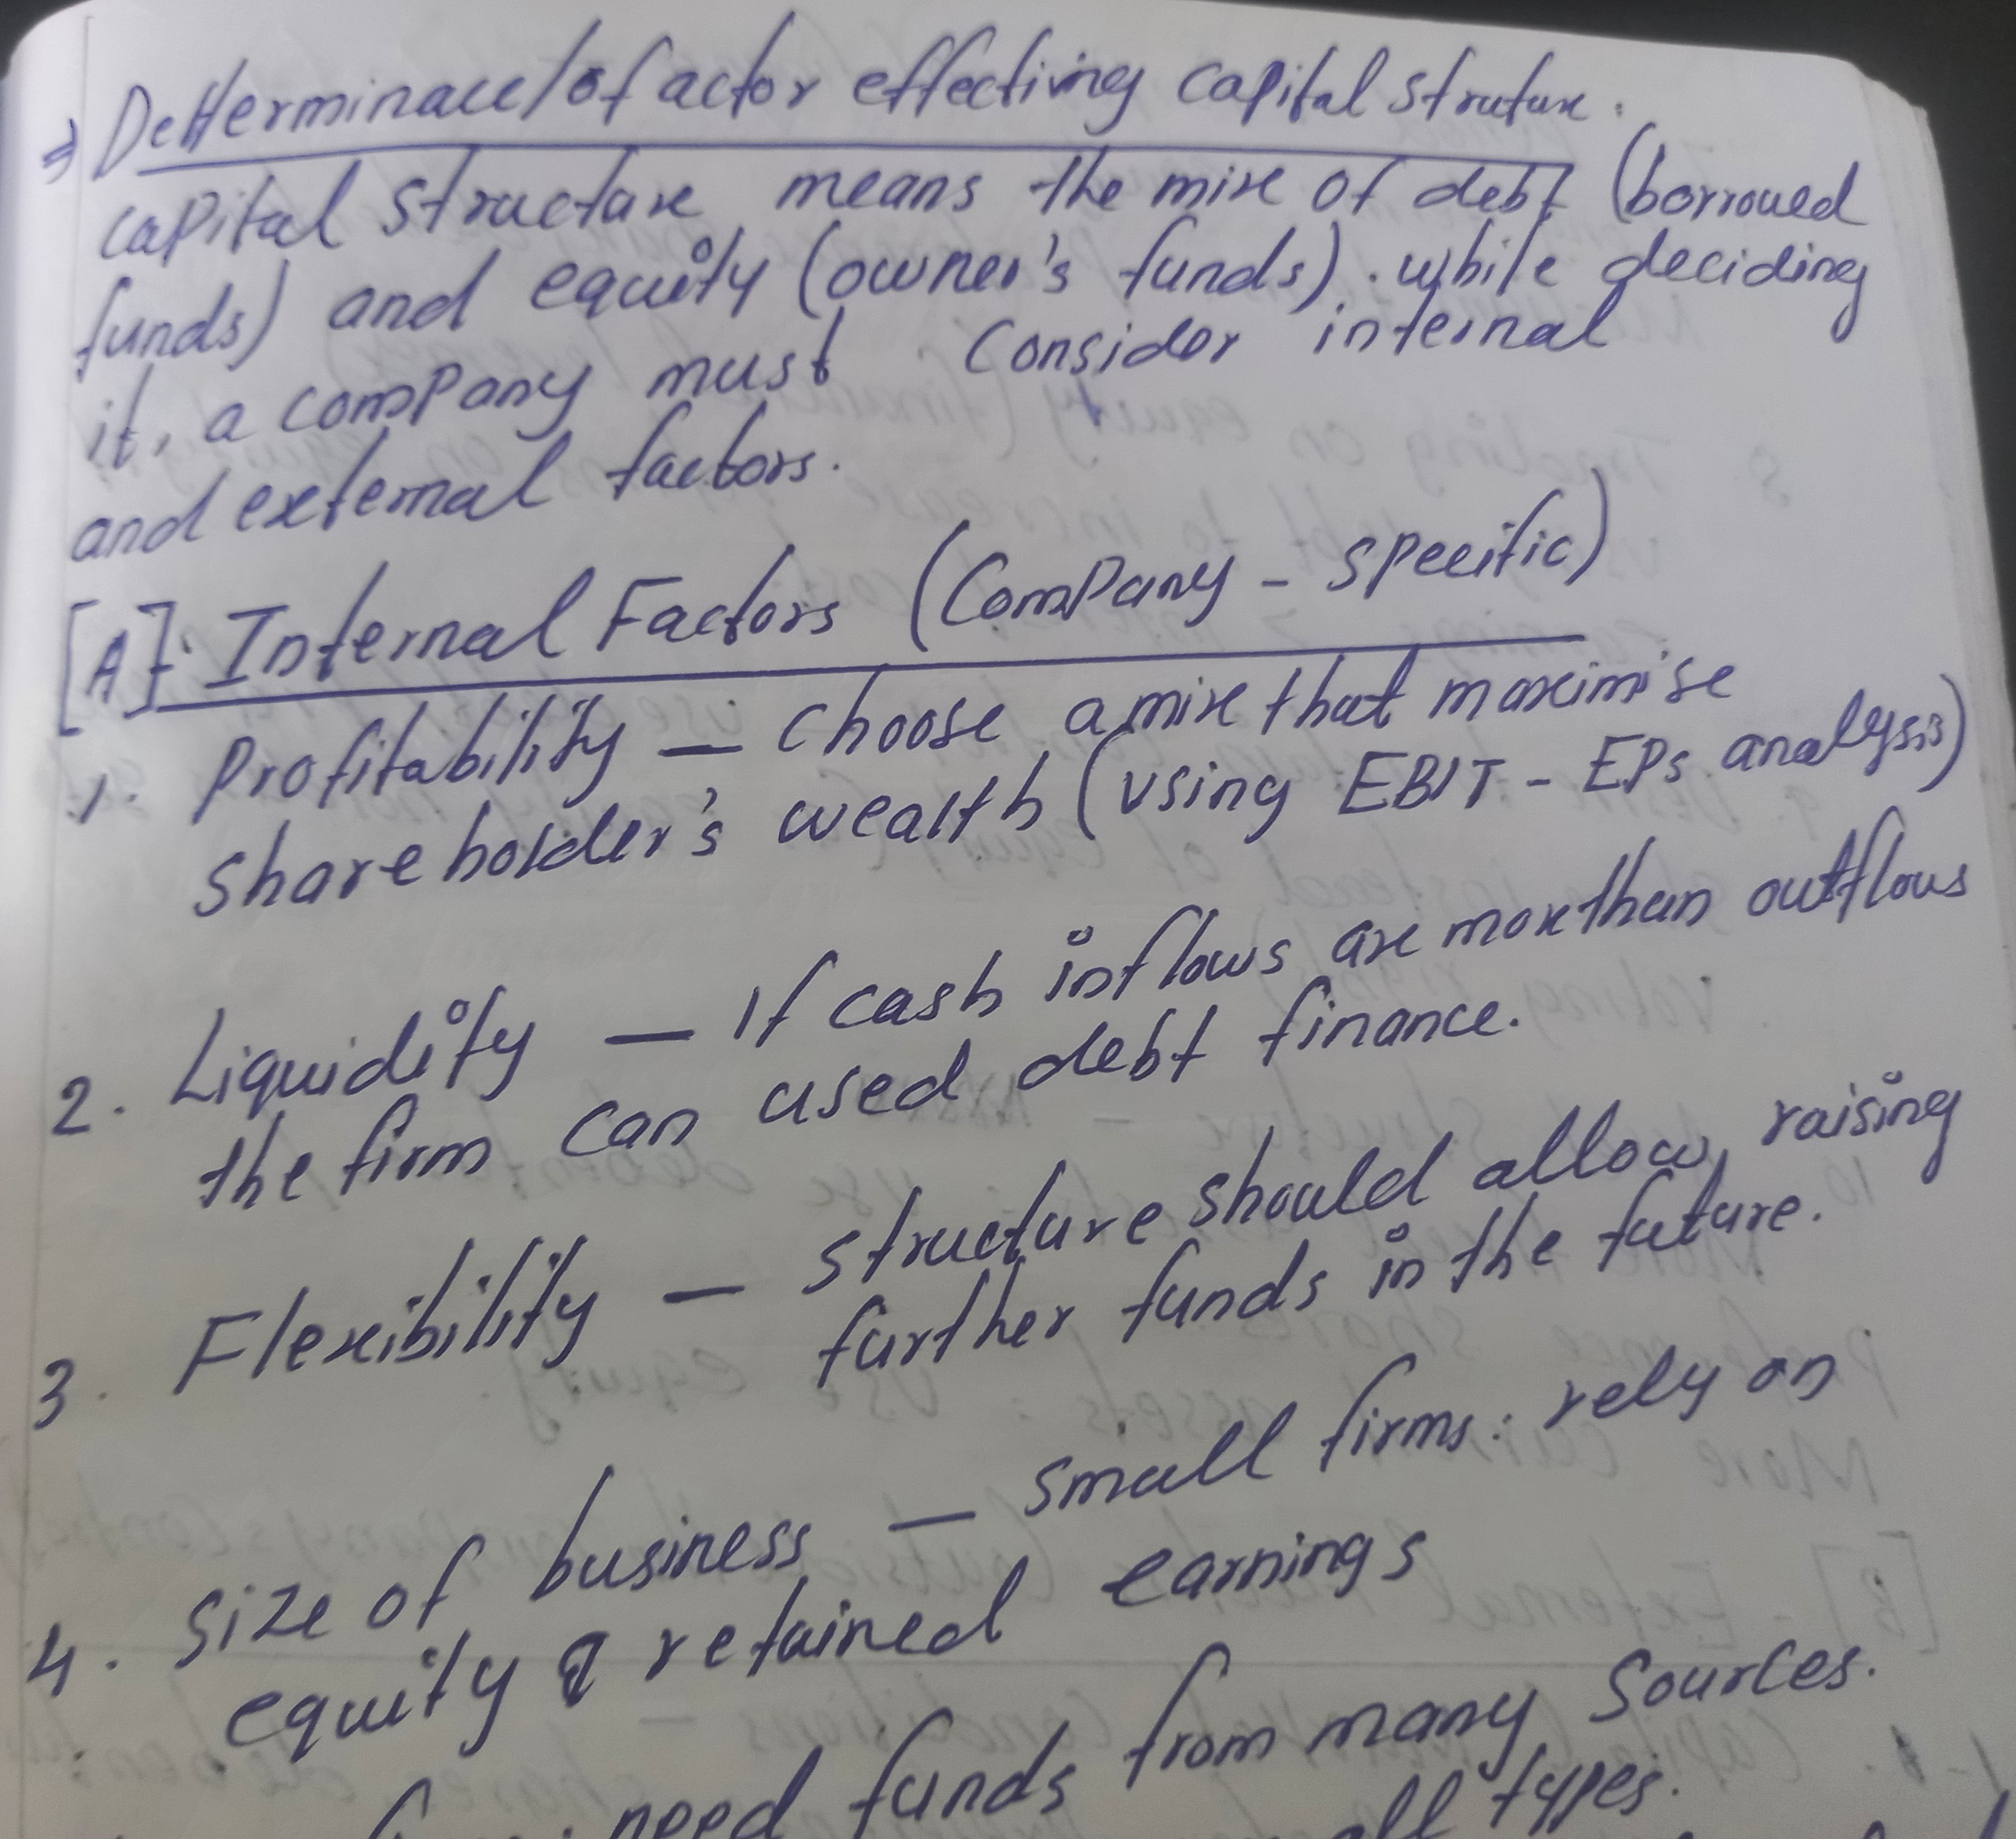 ⇒ Detterminace/of actor effectiving capital Struture.
capital Structure means the mix of debt (borrowed
funds) and equity (owner's funds). while deciding
it, a company must consider internal
and external factors.
[A]: Internal Factors (Company - specific)
1. Profitability — choose a mix that maximise
shareholder's wealth (using EBIT - EPS analysis)
2. Liquidity — if cash inflows are more than outflows
the firm can used debt finance.
3. Flexibility — structure should allow raising
further funds in the future.
4. size of business — small firms: rely on
equity & retained earnings
need funds from many sources.
all types.